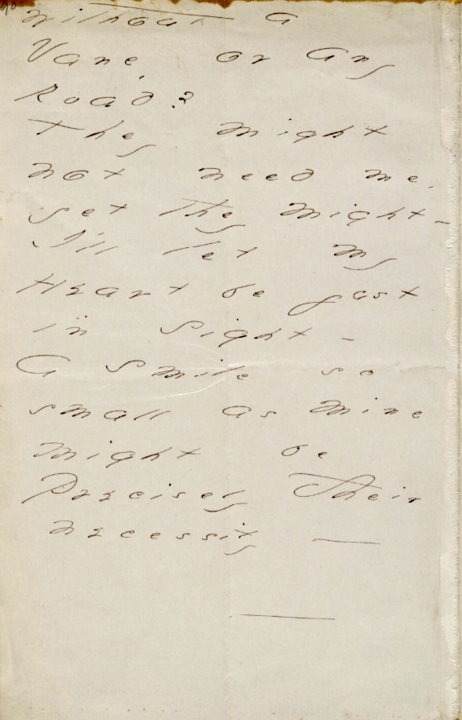 without a
Vane, or any
Road?
They might
not need me,
yet they might -
I'll let my
Heart be just
in sight -
A smile so
small as mine
might be
Precisely their
necessity —